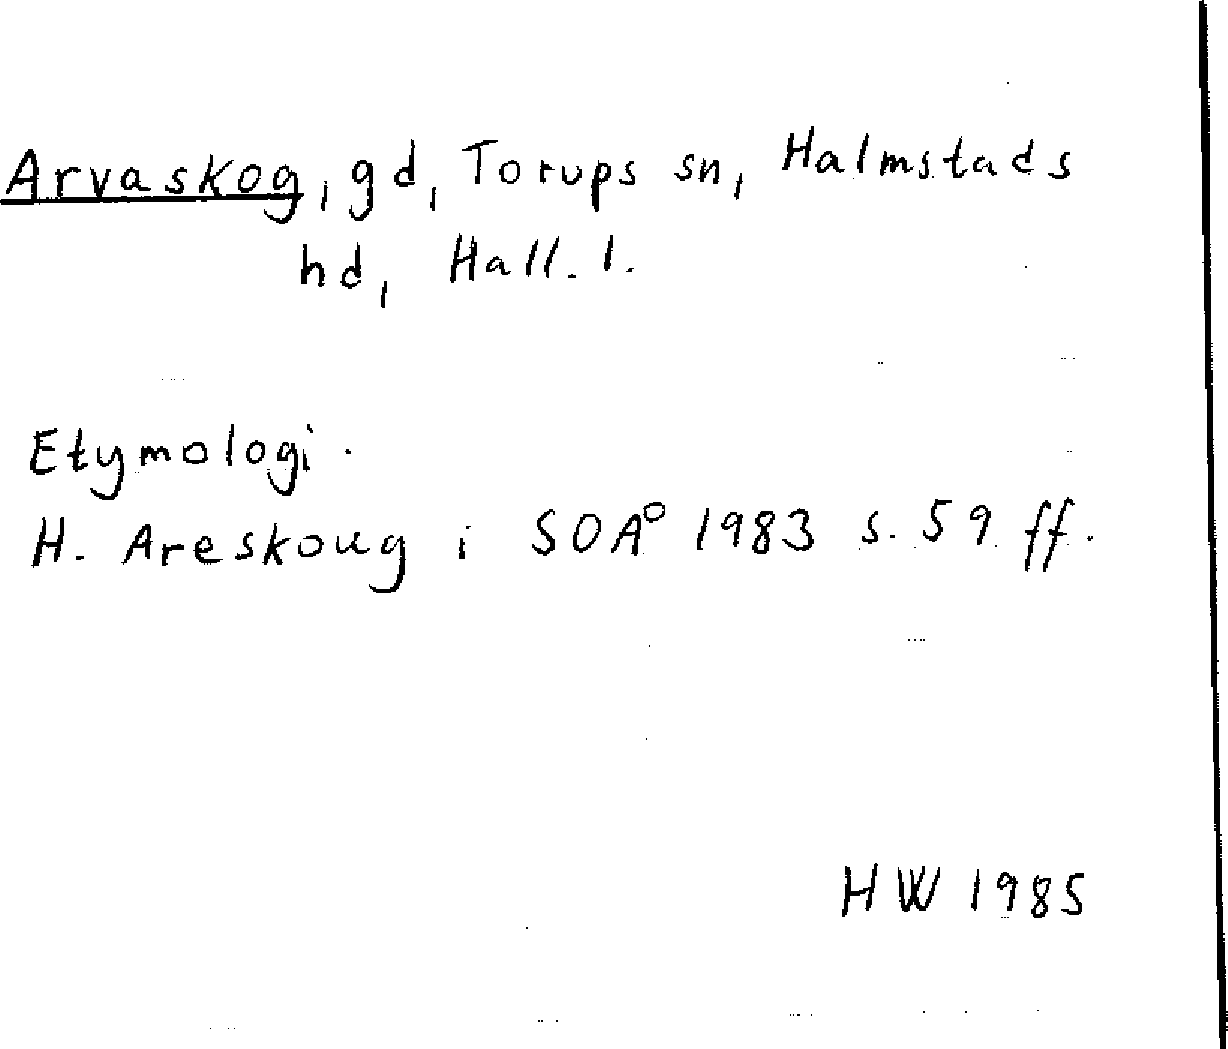 Arvaskog, gd, Torups sn, Halmstads
hd, Hall. l.
Etymologi.
H. Areskoug i SOÅ 1983 s. 59 ff.
HW 1985